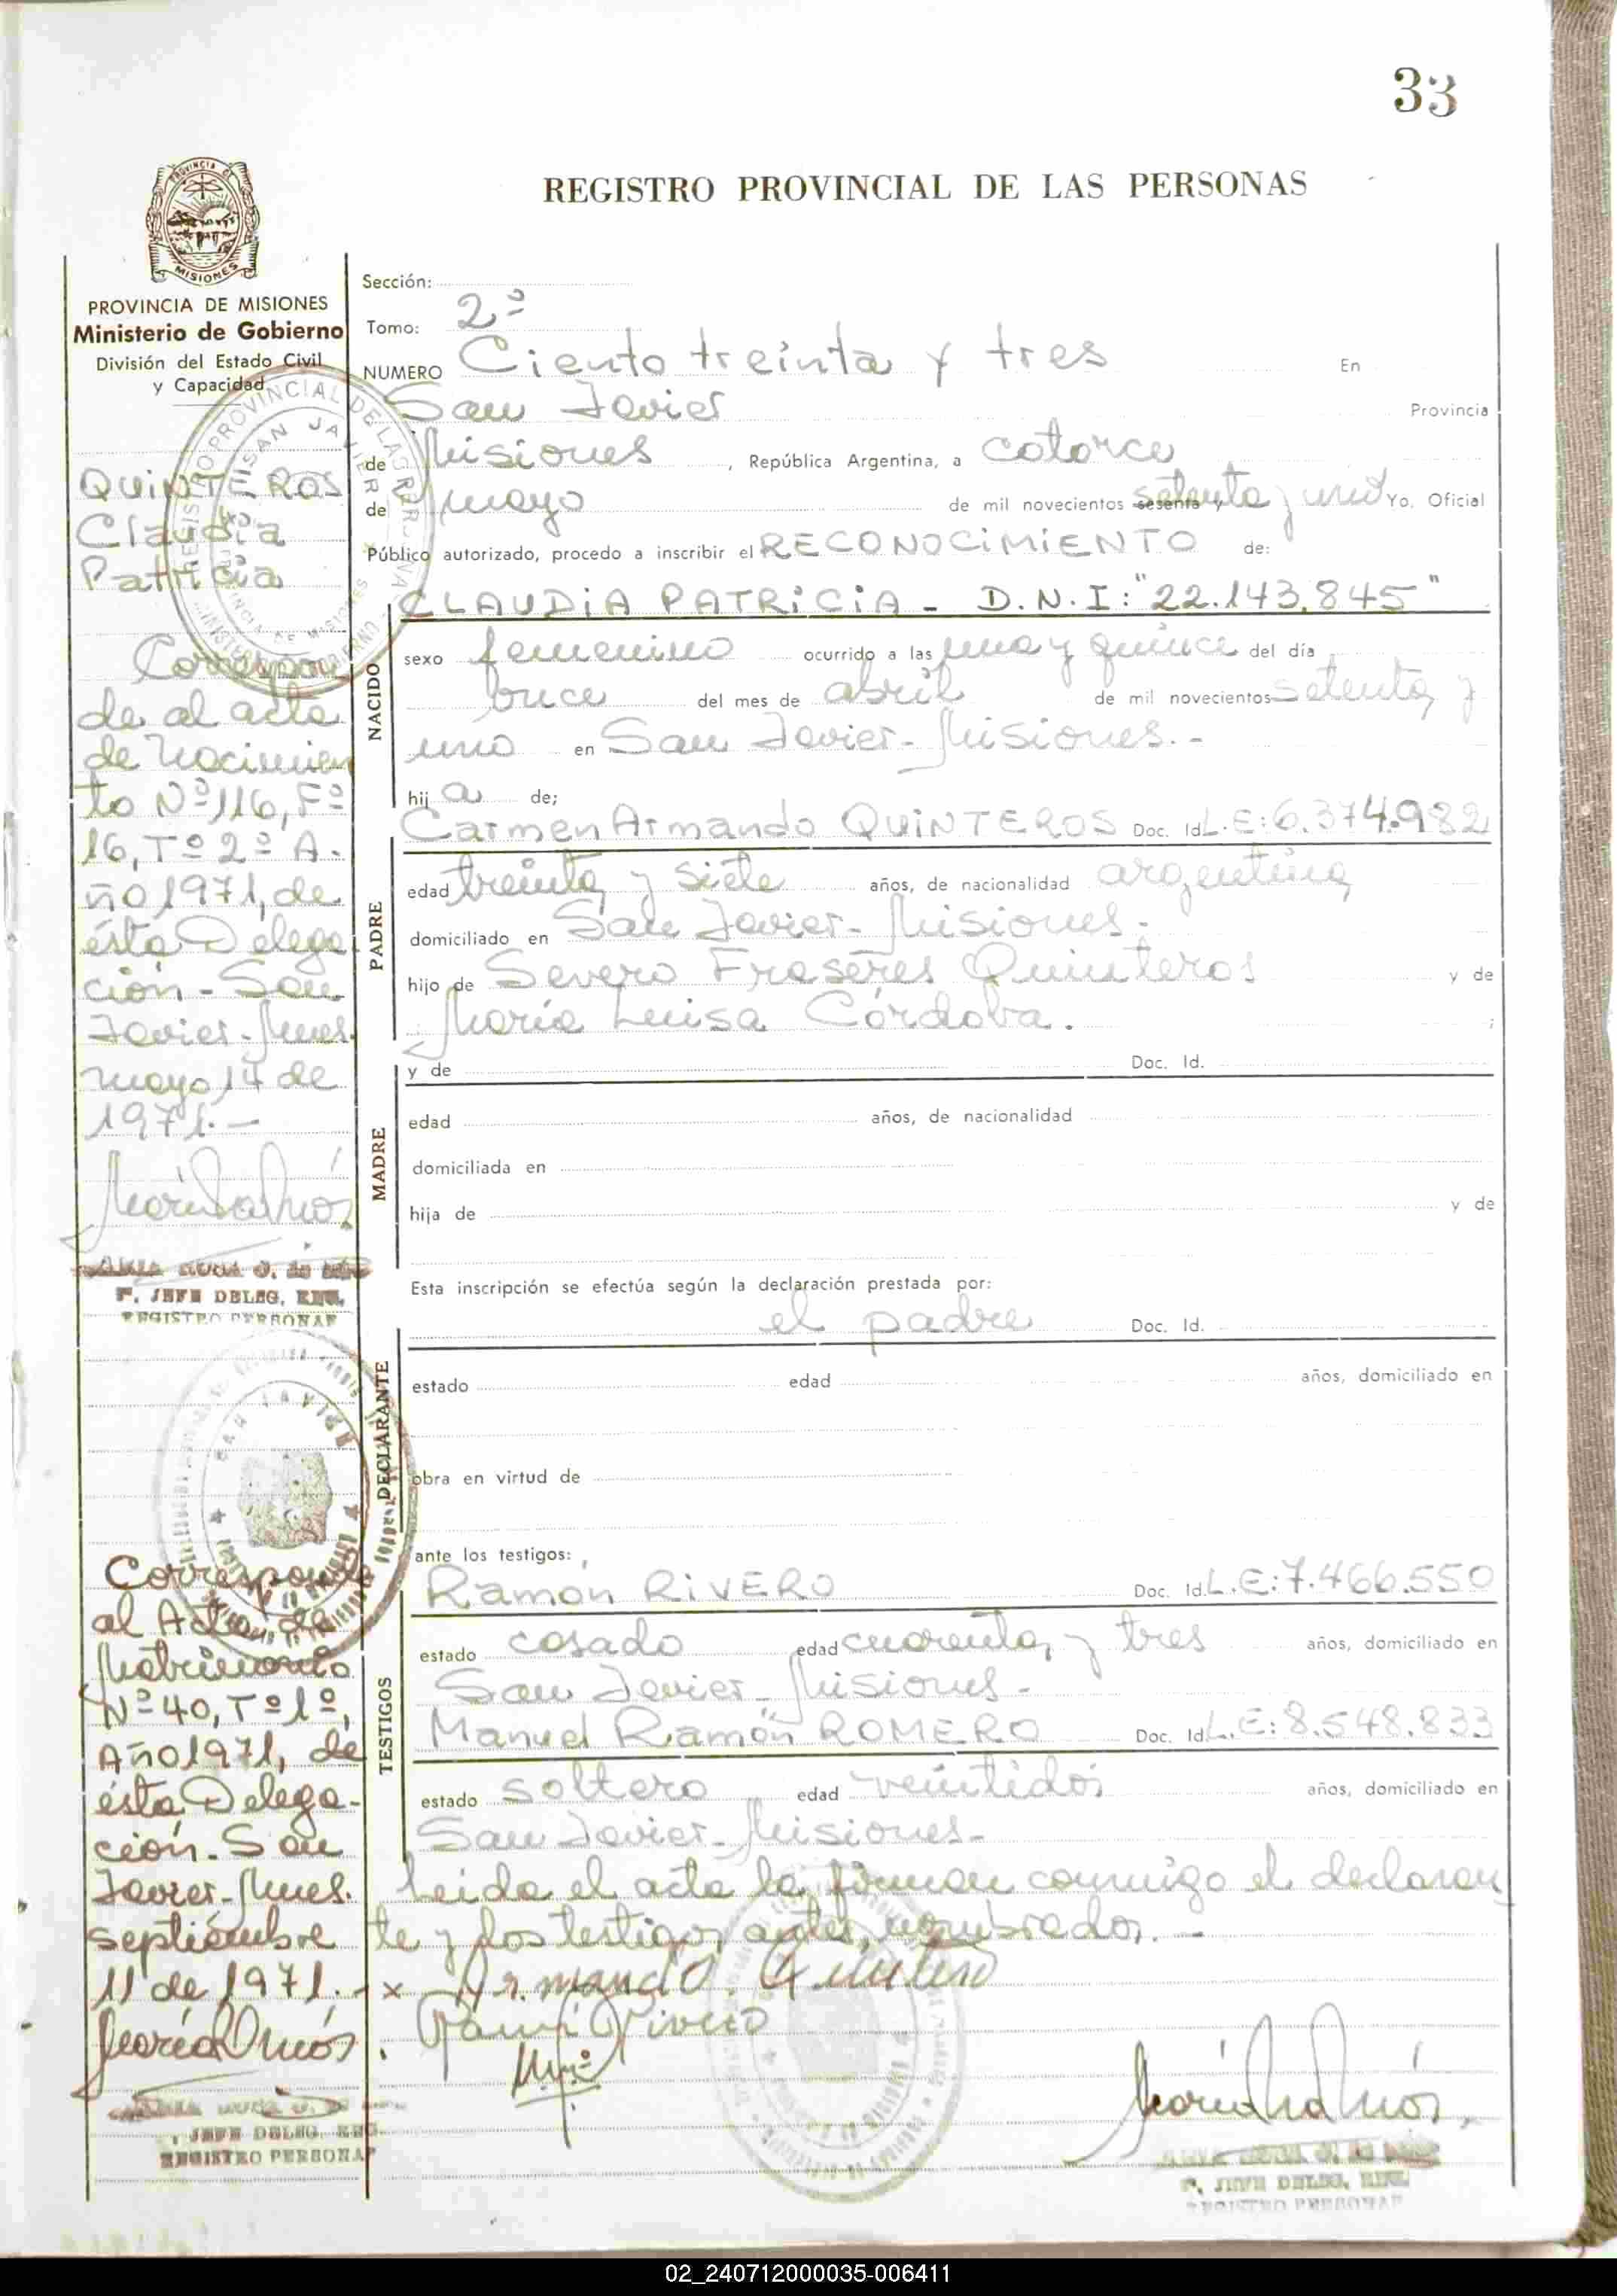 33
REGISTRO PROVINCIAL DE LAS PERSONAS
PROVINCIA DE
MISIONES
PROVINCIA DE MISIONES
Ministerio de Gobierno
División del Estado Civil
y Capacidad
QUINTEROS
Claudia
Patricia
Correspon
de al acta
de Nacimien
to Nº 116, Fº
16, Tº 2º A-
ño 1971, de
ésta Delega
ción - San
Javier - Mnes.
mayo, 14 de
1971. -
F. JEFE DELEG. REG.
REGISTRO PERSONAS
Corresponde
al Acta de
Matrimonio
Nº 40, Tº 1º,
Año 1971, de
ésta Delega-
ción. San
Javier - Mnes.
septiembre
11 de 1971. -
JEFE DELEG. REG.
REGISTRO PERSONAS
Sección:
Tomo: 2º
NUMERO Ciento treinta y tres En
San Javier Provincia
de Misiones, República Argentina, a catorce
de mayo de mil novecientos sesenta y setenta y uno Yo, Oficial
Público autorizado, procedo a inscribir el RECONOCIMIENTO de:
CLAUDIA PATRICIA - D.N.I: "22.143.845"
NACIDO
sexo femenino ocurrido a las una y quince del día
once del mes de abril de mil novecientos setenta y
uno en San Javier - Misiones. -
hija de;
PADRE
Carmen Armando QUINTEROS Doc. Id. L.E: 6.374.982
edad treinta y siete años, de nacionalidad argentina
domiciliado en San Javier - Misiones -
hijo de Severo Quinteros y de
María Luisa Córdoba. ;
MADRE
y de Doc. Id.
edad años, de nacionalidad
domiciliada en
hija de y de
Esta inscripción se efectúa según la declaración prestada por:
DECLARANTE
el padre Doc. Id.
estado edad años, domiciliado en
obra en virtud de
ante los testigos:
TESTIGOS
Ramón RIVERO Doc. Id. L.E: 7.466.550
estado casado edad cuarenta y tres años, domiciliado en
San Javier - Misiones -
Manuel Ramón ROMERO Doc. Id. L.E: 8.548.833
estado soltero edad veintidós años, domiciliado en
San Javier - Misiones -
Leida el acta la firman conmigo el declaran
te y los testigos antes nombrados. -
x Armando Quintero
Ramón Rivero
F. JEFE DELEG. REG.
REGISTRO PERSONAS
02_240712000035-006411